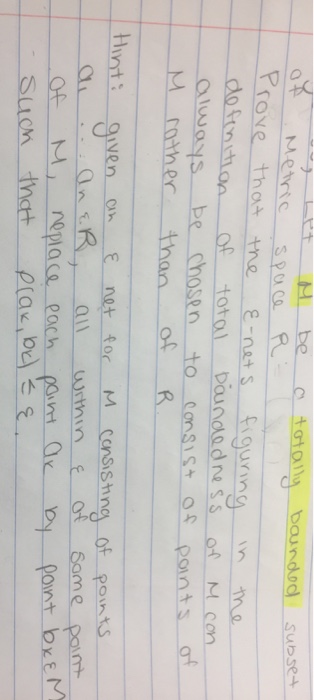 Let M be a totally bounded subset
of metric space R.
Prove that the ε-nets figuring in the
definition of total boundedness of M can
always be chosen to consist of points of
M rather than of R
Hint: given an ε net for M consisting of points
a₁ ... an ε R, all within ε of some point
of M, replace each point ak by point bk ε M
- Such that ρ(ak, bk) ≤ ε.